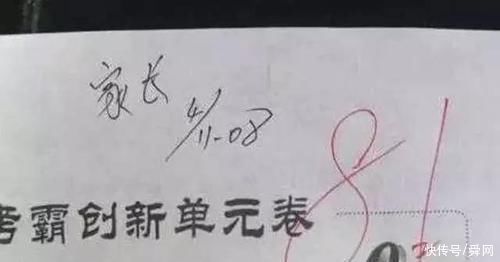 家长
4/11-08
81
考霸创新单元卷
快传号/舜网